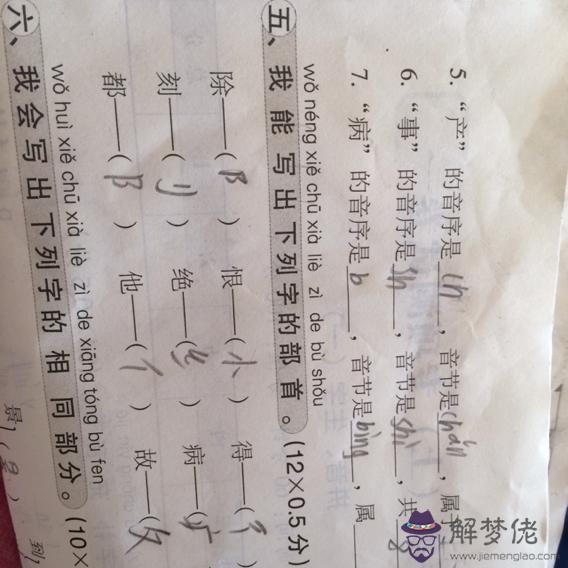 5. “产” 的音序是 ch ，音节是chǎn，属
6. “事” 的音序是 sh ，音节是shì，共 8
7. “病” 的音序是 b ，音节是bìng，属
wǒ néng xiě chū xià liè zì de bù shǒu
五、我能写出下列字的部首。(12×0.5分)
除——(阝) 恨——(忄) 得——(彳)
刻——(刂) 绝——(纟) 病——(疒)
都——(阝) 他——(亻) 故——(攵)
wǒ huì xiě chū xià liè zì de xiāng tóng bù fen
六、我会写出下列字的相同部分。(10×
解梦佬
www.jiemenglao.com